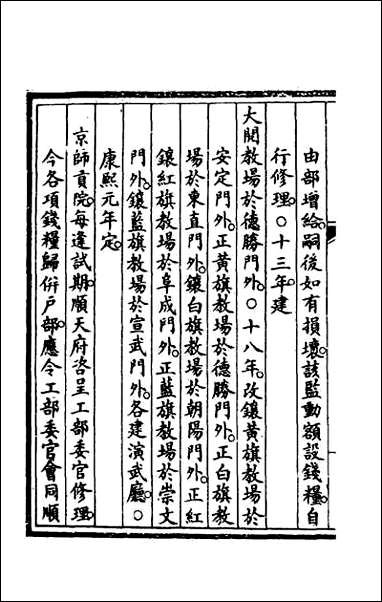 由部增給嗣後如有損壞該監動額設錢糧自
行修理○十三年建
大閱教場於德勝門外○十八年改鑲黃旗教場於
安定門外正黃旗教場於德勝門外正白旗教
場於東直門外鑲白旗教場於朝陽門外正紅
鑲紅旗教場於阜成門外正藍旗教場於崇文
門外鑲藍旗教場於宣武門外各建演武廳○
康熙元年定
京師貢院每逢試期順天府咨呈工部委官修理
今各項錢糧歸併戶部應令工部委官會同順